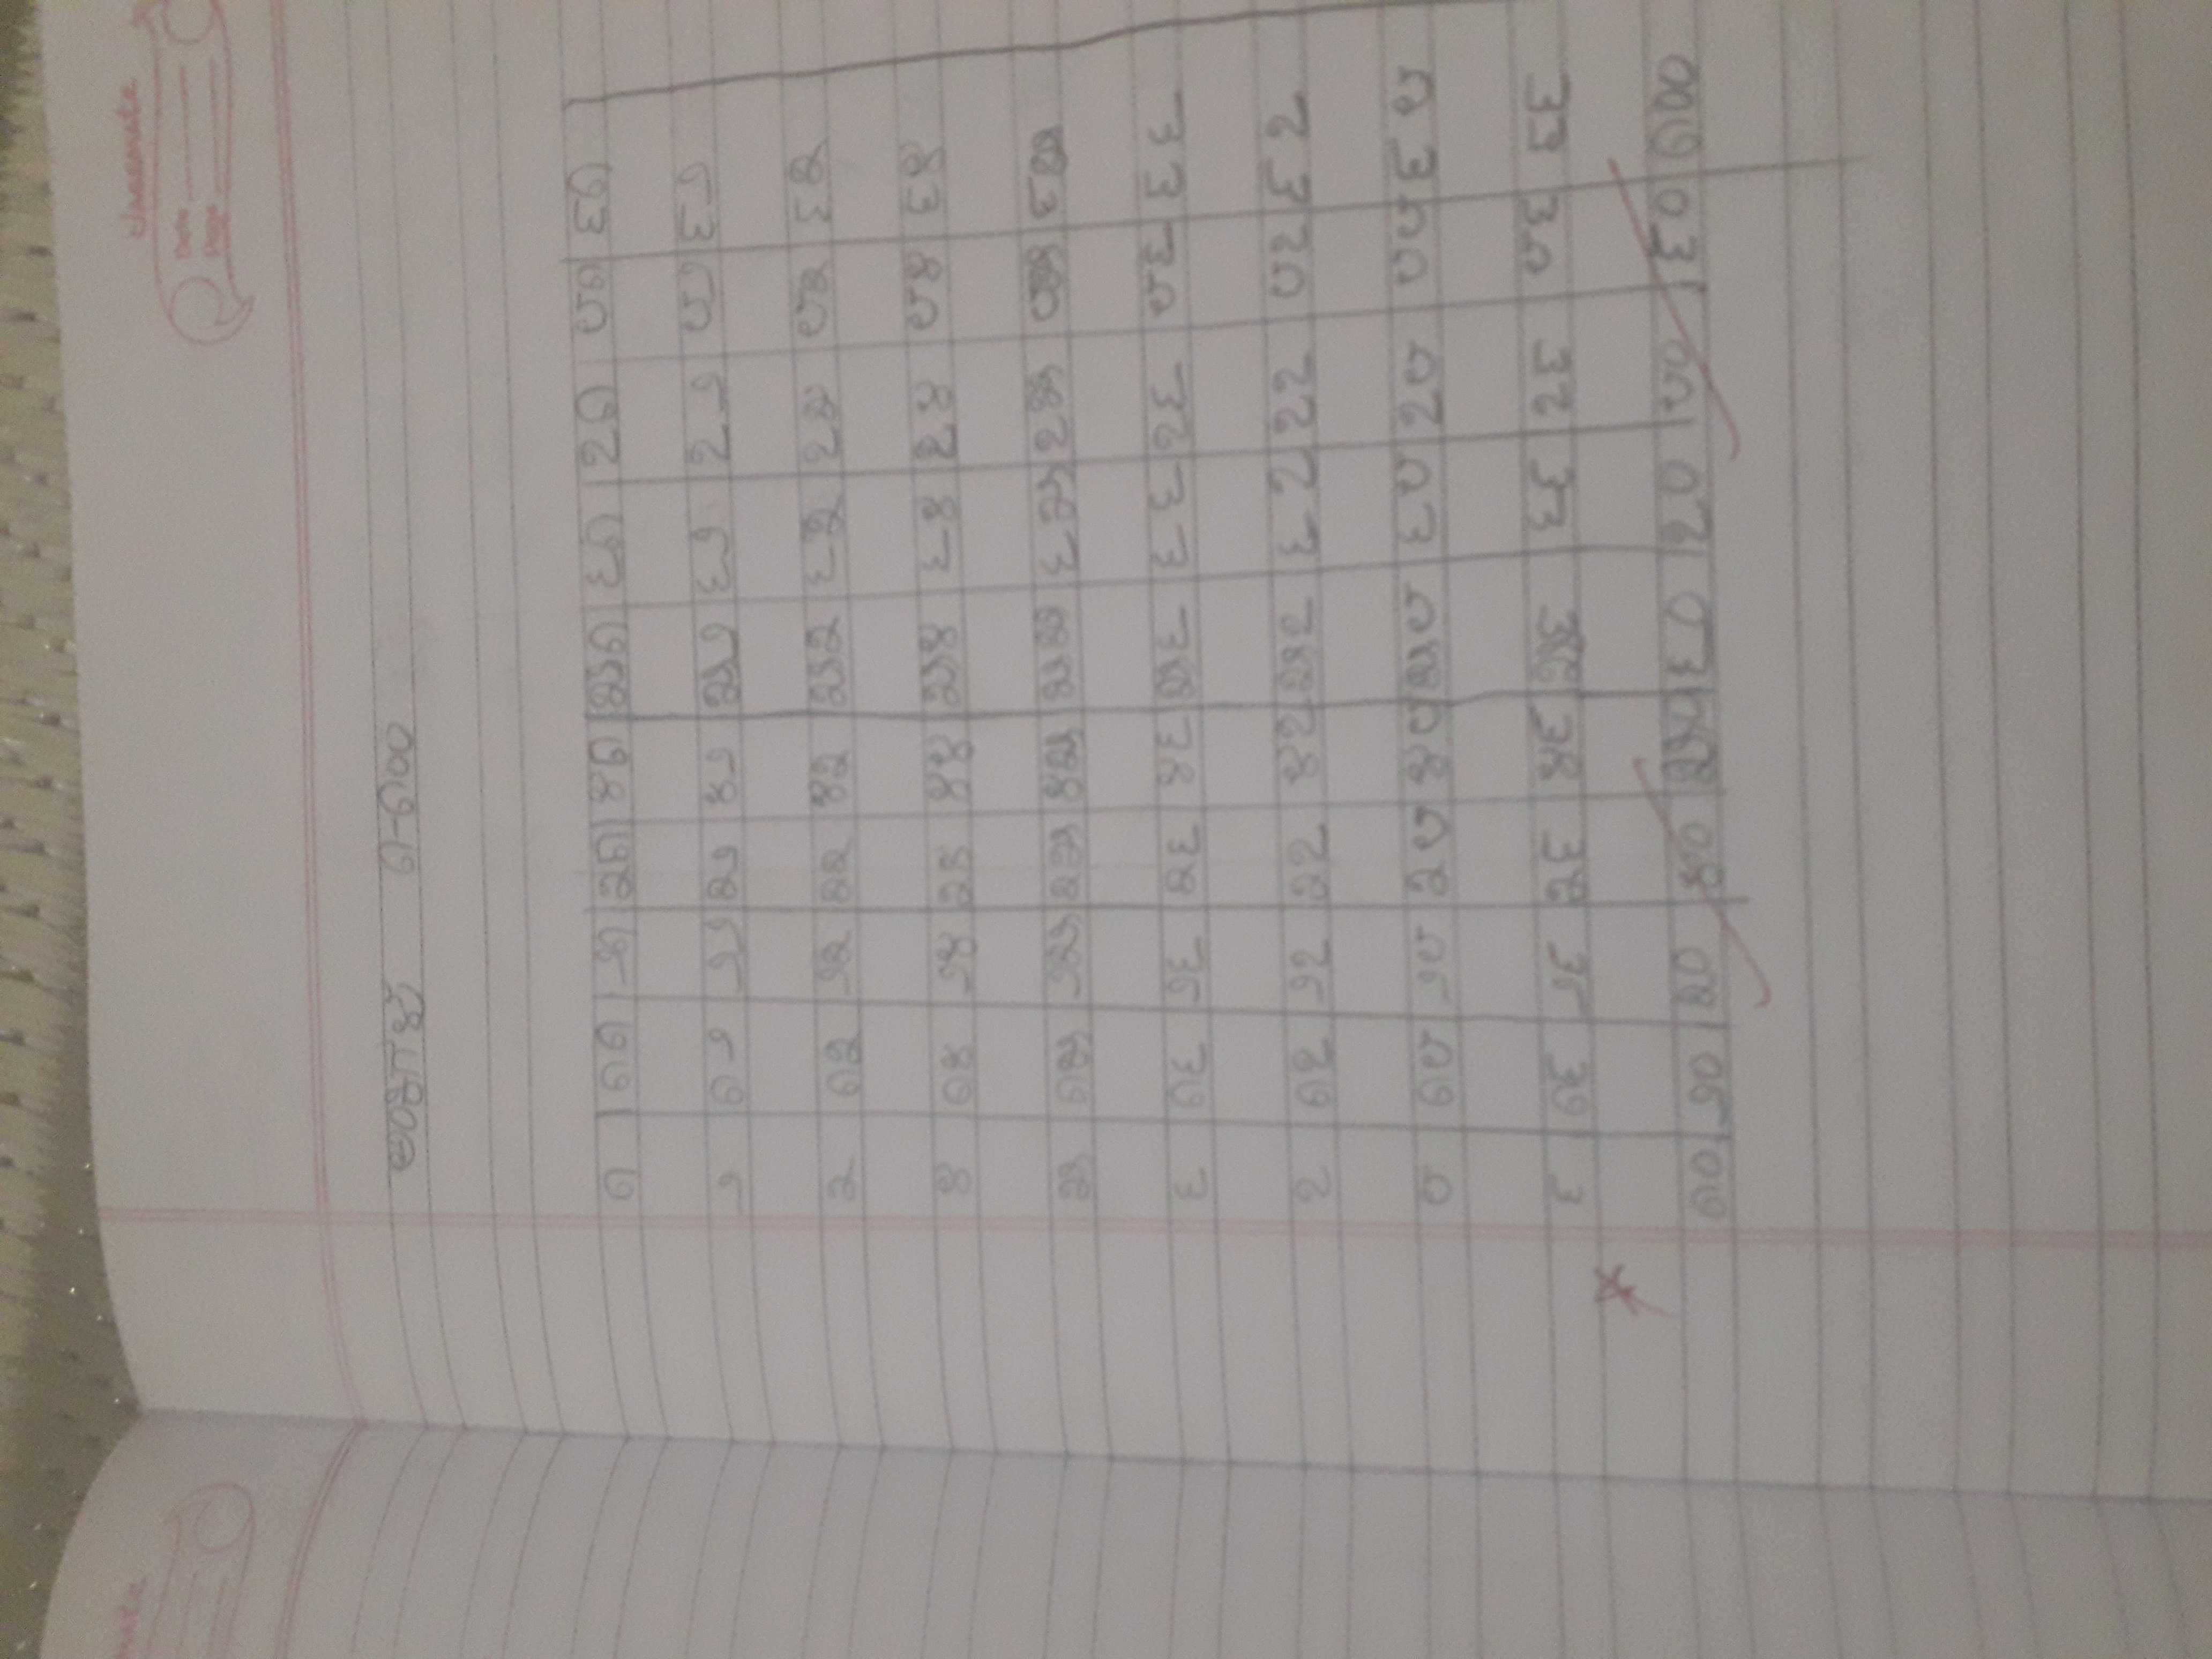 classmate
Date
Page
ಅಂಕಿಗಳು ೧-೧೦೦
೧ ೧೧ ೨೧ ೩೧ ೪೧ ೫೧ ೬೧ ೭೧ ೮೧ ೯೧
೨ ೧೨ ೨೨ ೩೨ ೪೨ ೫೨ ೬೨ ೭೨ ೮೨ ೯೨
೩ ೧೩ ೨೩ ೩೩ ೪೩ ೫೩ ೬೩ ೭೩ ೮೩ ೯೩
೪ ೧೪ ೨೪ ೩೪ ೪೪ ೫೪ ೬೪ ೭೪ ೮೪ ೯೪
೫ ೧೫ ೨೫ ೩೫ ೪೫ ೫೫ ೬೫ ೭೫ ೮೫ ೯೫
೬ ೧೬ ೨೬ ೩೬ ೪೬ ೫೬ ೬೬ ೭೬ ೮೬ ೯೬
೭ ೧೭ ೨೭ ೩೭ ೪೭ ೫೭ ೬೭ ೭೭ ೮೭ ೯೭
೮ ೧೮ ೨೮ ೩೮ ೪೮ ೫೮ ೬೮ ೭೮ ೮೮ ೯೮
೯ ೧೯ ೨೯ ೩೯ ೪೯ ೫೯ ೬೯ ೭೯ ೮೯ ೯೯
೧೦ ೨೦ ೩೦ ೪೦ ೫೦ ೬೦ ೭೦ ೮೦ ೯೦ ೧೦೦